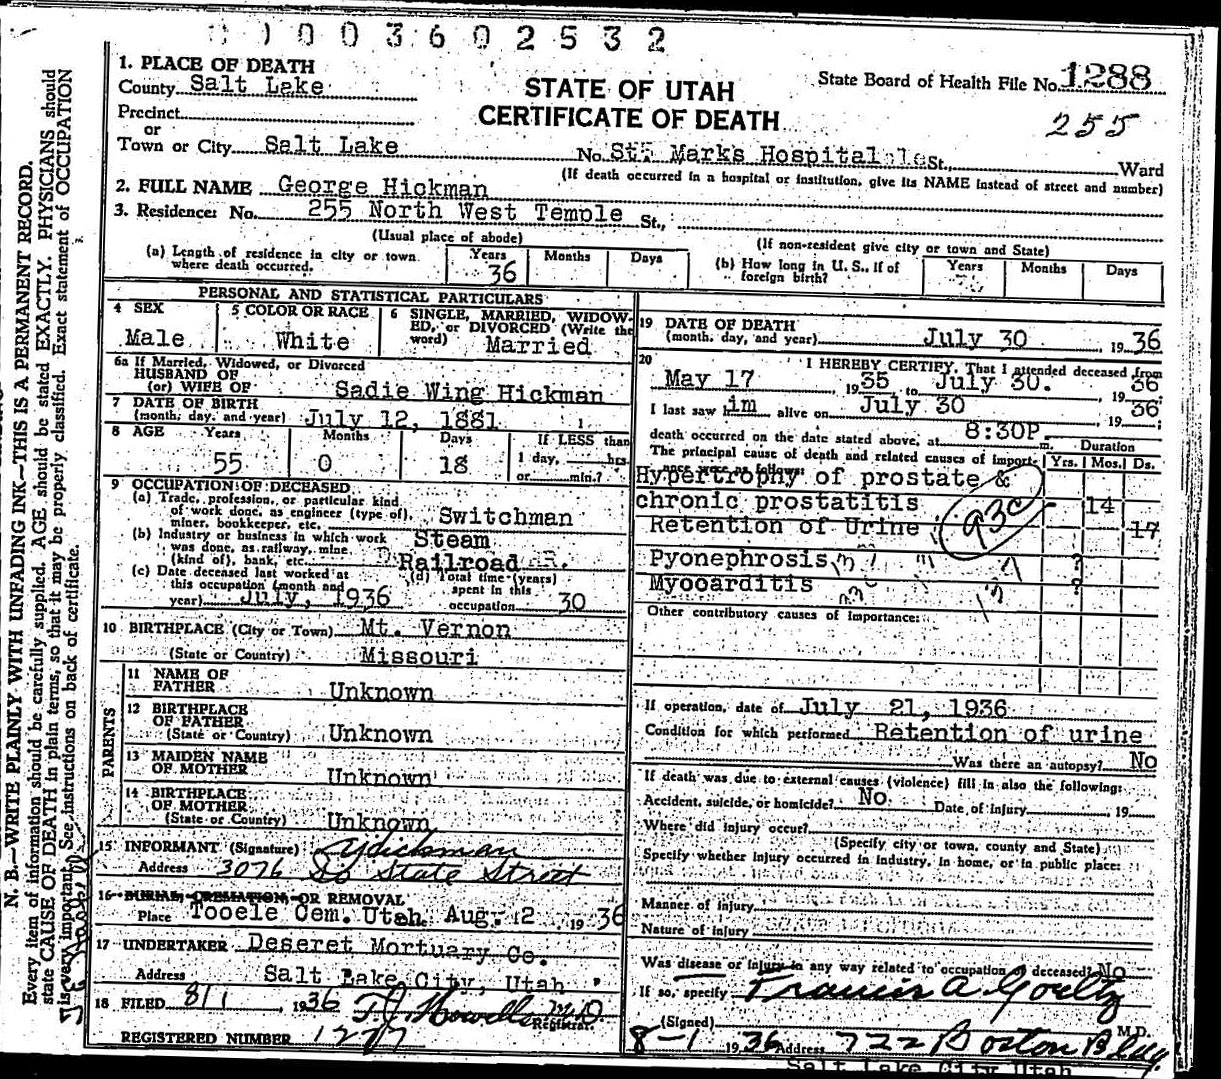 0 1 0 0 3 6 0 2 5 3 2
1. PLACE OF DEATH
County Salt Lake
Precinct
or
Town or City Salt Lake
STATE OF UTAH
CERTIFICATE OF DEATH
State Board of Health File No. 1288
255
No. St. Marks Hospital St., Ward
(If death occurred in a hospital or institution, give its NAME instead of street and number)
2. FULL NAME George Hickman
3. Residence: No. 255 North West Temple St.,
(Usual place of abode)
(If non-resident give city or town and State)
(a) Length of residence in city or town where death occurred. Years 36 Months Days
(b) How long in U. S., if of foreign birth? Years Months Days
PERSONAL AND STATISTICAL PARTICULARS
4 SEX Male
5 COLOR OR RACE White
6 SINGLE, MARRIED, WIDOWED, or DIVORCED (Write the word) Married
6a If Married, Widowed, or Divorced
HUSBAND OF
(or) WIFE OF Sadie Wing Hickman
7 DATE OF BIRTH
(month, day, and year) July 12, 1881
8 AGE Years 55 Months 0 Days 18 If LESS than 1 day, hrs. or min.?
9 OCCUPATION OF DECEASED
(a) Trade, profession, or particular kind of work done, as engineer (type of), miner, bookkeeper, etc. Switchman
(b) Industry or business in which work was done, as railway, mine (kind of), bank, etc. Steam Railroad
(c) Date deceased last worked at this occupation (month and year) July, 1936
(d) Total time (years) spent in this occupation 30
10 BIRTHPLACE (City or Town) Mt. Vernon
(State or Country) Missouri
PARENTS
11 NAME OF FATHER Unknown
12 BIRTHPLACE OF FATHER
(State or Country) Unknown
13 MAIDEN NAME OF MOTHER Unknown
14 BIRTHPLACE OF MOTHER
(State or Country) Unknown
15 INFORMANT (Signature) Hickman
Address 3076 So State Street
16 BURIAL, CREMATION, OR REMOVAL
Place Tooele Cem. Utah Aug. 2 1936
17 UNDERTAKER Deseret Mortuary Co.
Address Salt Lake City, Utah
18 FILED 8/1 1936 Howells MD
Registrar.
REGISTERED NUMBER 1277
19 DATE OF DEATH
(month, day, and year) July 30, 1936
20 I HEREBY CERTIFY, That I attended deceased from
May 17 1935 to July 30. 1936
I last saw him alive on July 30 1936;
death occurred on the date stated above, at 8:30P m.
The principal cause of death and related causes of importance were as follows:
Duration
Yrs. Mos. Ds.
Hypertrophy of prostate &
chronic prostatitis 14
Retention of Urine 17
93c
Pyonephrosis ?
Myocarditis ?
Other contributory causes of importance:
If operation, date of July 21, 1936
Condition for which performed Retention of urine
Was there an autopsy? No
If death was due to external causes (violence) fill in also the following:
Accident, suicide, or homicide? No Date of injury 19
Where did injury occur?
(Specify city or town, county and State)
Specify whether injury occurred in industry, in home, or in public place:
Manner of injury
Nature of injury
Was disease or injury in any way related to occupation of deceased? No
If so, specify
(Signed) Francis A Goeltz M.D.
8-1 1936 Address 722 Boston Bldg.
Salt Lake City Utah
N. B.—WRITE PLAINLY WITH UNFADING INK—THIS IS A PERMANENT RECORD.
Every item of information should be carefully supplied. AGE should be stated EXACTLY. PHYSICIANS should
state CAUSE OF DEATH in plain terms, so that it may be properly classified. Exact statement of OCCUPATION
is very important. See instructions on back of certificate.